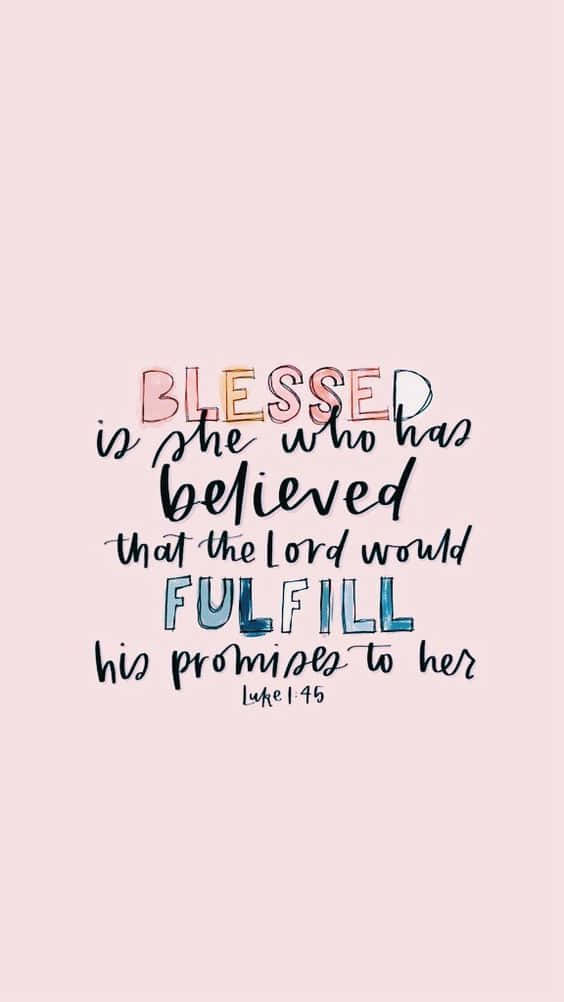 BLESSED
is she who has
believed
that the Lord would
FULFILL
his promises to her
Luke 1:45